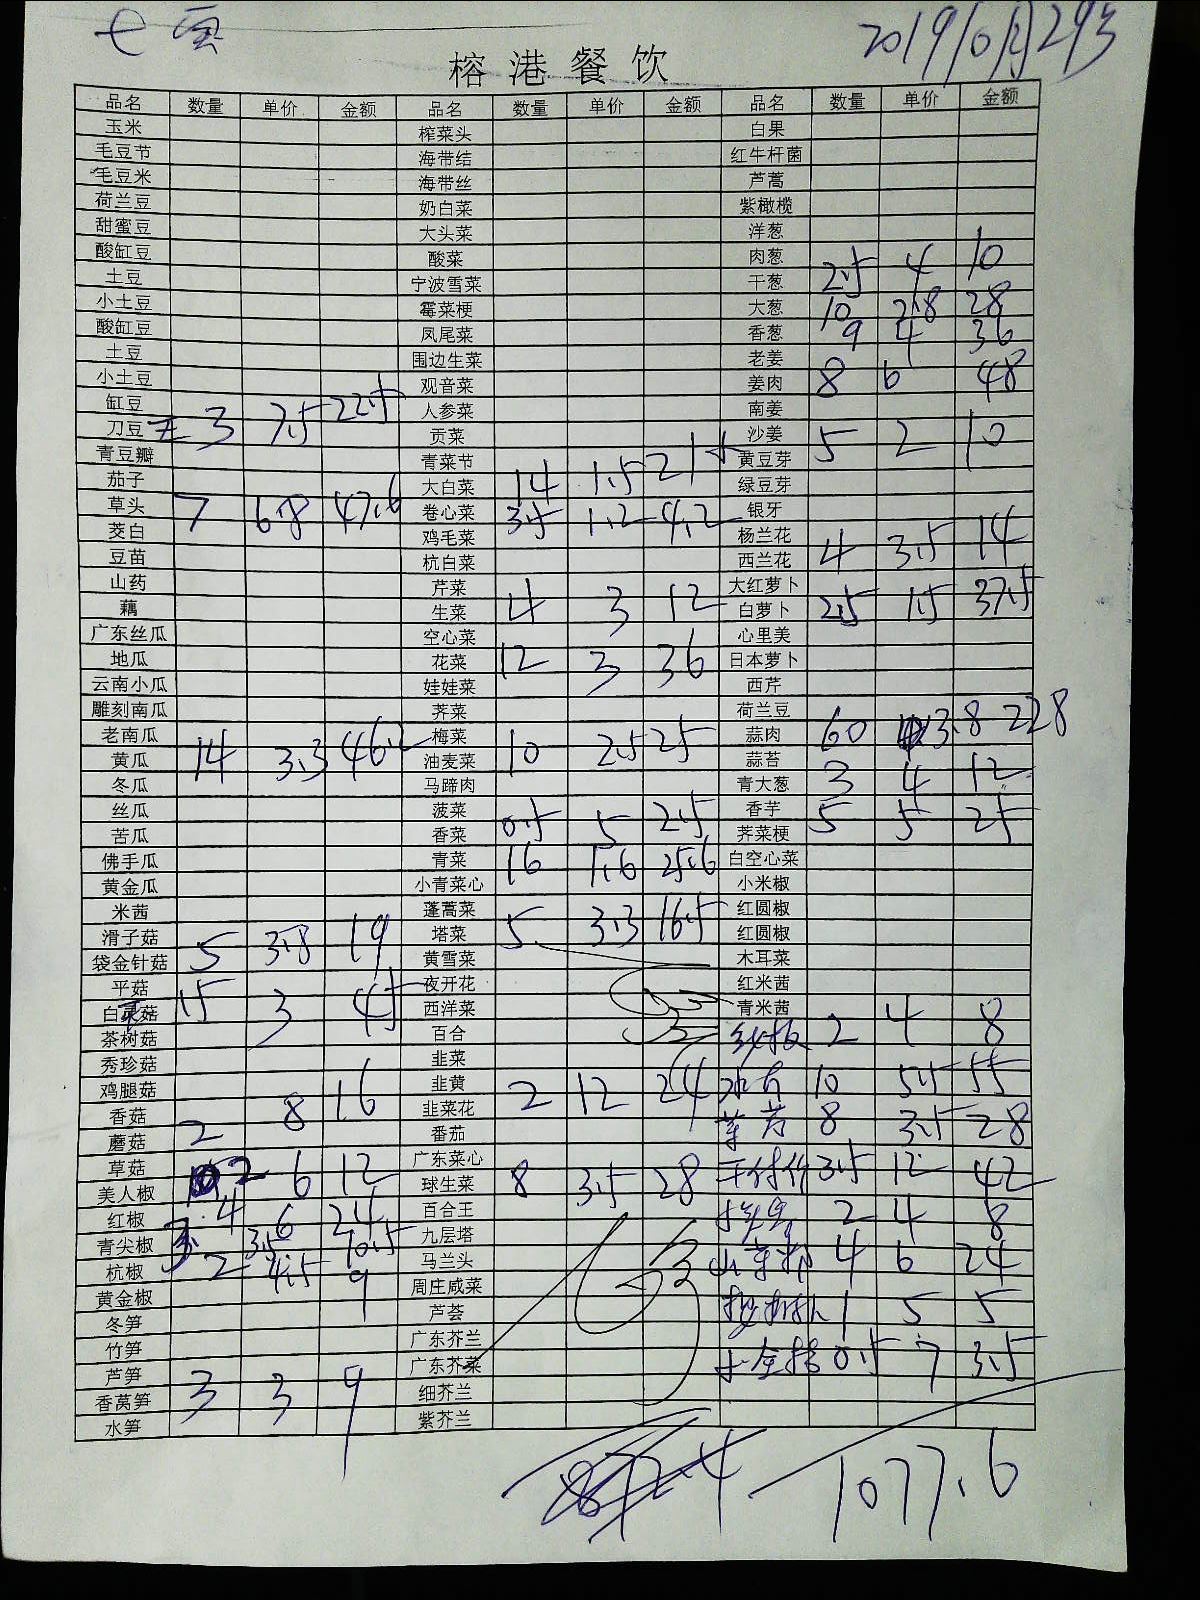 七页
2019/10月29号
榕港餐饮
品名 数量 单价 金额 品名 数量 单价 金额 品名 数量 单价 金额
玉米 榨菜头 白果
毛豆节 海带结 红牛杆菌
毛豆米 海带丝 芦蒿
荷兰豆 奶白菜 紫橄榄
甜蜜豆 大头菜 洋葱
酸缸豆 酸菜 肉葱
土豆 宁波雪菜 干葱 2.5 4 10
小土豆 霉菜梗 大葱 10 2.8 28
酸缸豆 凤尾菜 香葱 9 4 36
土豆 围边生菜 老姜
小土豆 观音菜 姜肉 8 6 48
缸豆 人参菜 南姜
刀豆 3 7.5 22.5 贡菜 沙姜 5 2 10
青豆瓣 青菜节 黄豆芽
茄子 大白菜 14 1.5 21 绿豆芽
草头 7 6.8 47.6 卷心菜 3.5 1.2 4.2 银牙
茭白 鸡毛菜 杨兰花
豆苗 杭白菜 西兰花 4 3.5 14
山药 芹菜 大红萝卜
藕 生菜 4 3 12 白萝卜 25 1.5 37.5
广东丝瓜 空心菜 心里美
地瓜 花菜 12 3 36 日本萝卜
云南小瓜 娃娃菜 西芹
雕刻南瓜 荠菜 荷兰豆
老南瓜 梅菜 蒜肉 60 3.8 228
黄瓜 14 3.3 46.2 油麦菜 10 2.5 25 蒜苔
冬瓜 马蹄肉 青大葱 3 4 12
丝瓜 菠菜 香芋 5 5 25
苦瓜 香菜 0.5 5 2.5 荠菜梗
佛手瓜 青菜 16 1.6 25.6 白空心菜
黄金瓜 小青菜心 小米椒
米茜 蓬蒿菜 红圆椒
滑子菇 塔菜 5 3.3 16.5 红圆椒
袋金针菇 5 3.8 19 黄雪菜 木耳菜
平菇 夜开花 红米茜
白灵菇 15 3 45 西洋菜 青米茜
茶树菇 百合 2 4 8
秀珍菇 韭菜
鸡腿菇 韭黄 2 12 24 10 5.5 55
香菇 韭菜花 8 3.5 28
蘑菇 2 8 16 番茄
草菇 广东菜心 3.5 12 42
美人椒 2 6 12 球生菜 8 3.5 28
红椒 4 6 24 百合王 2 4 8
青尖椒 3 3.5 10.5 九层塔
杭椒 2 4.5 9 马兰头 4 6 24
黄金椒 周庄咸菜
冬笋 芦荟 1 5 5
竹笋 广东芥兰
芦笋 广东芥菜 0.5 7 3.5
香莴笋 3 3 9 细芥兰
水笋 紫芥兰
872.4 1077.6